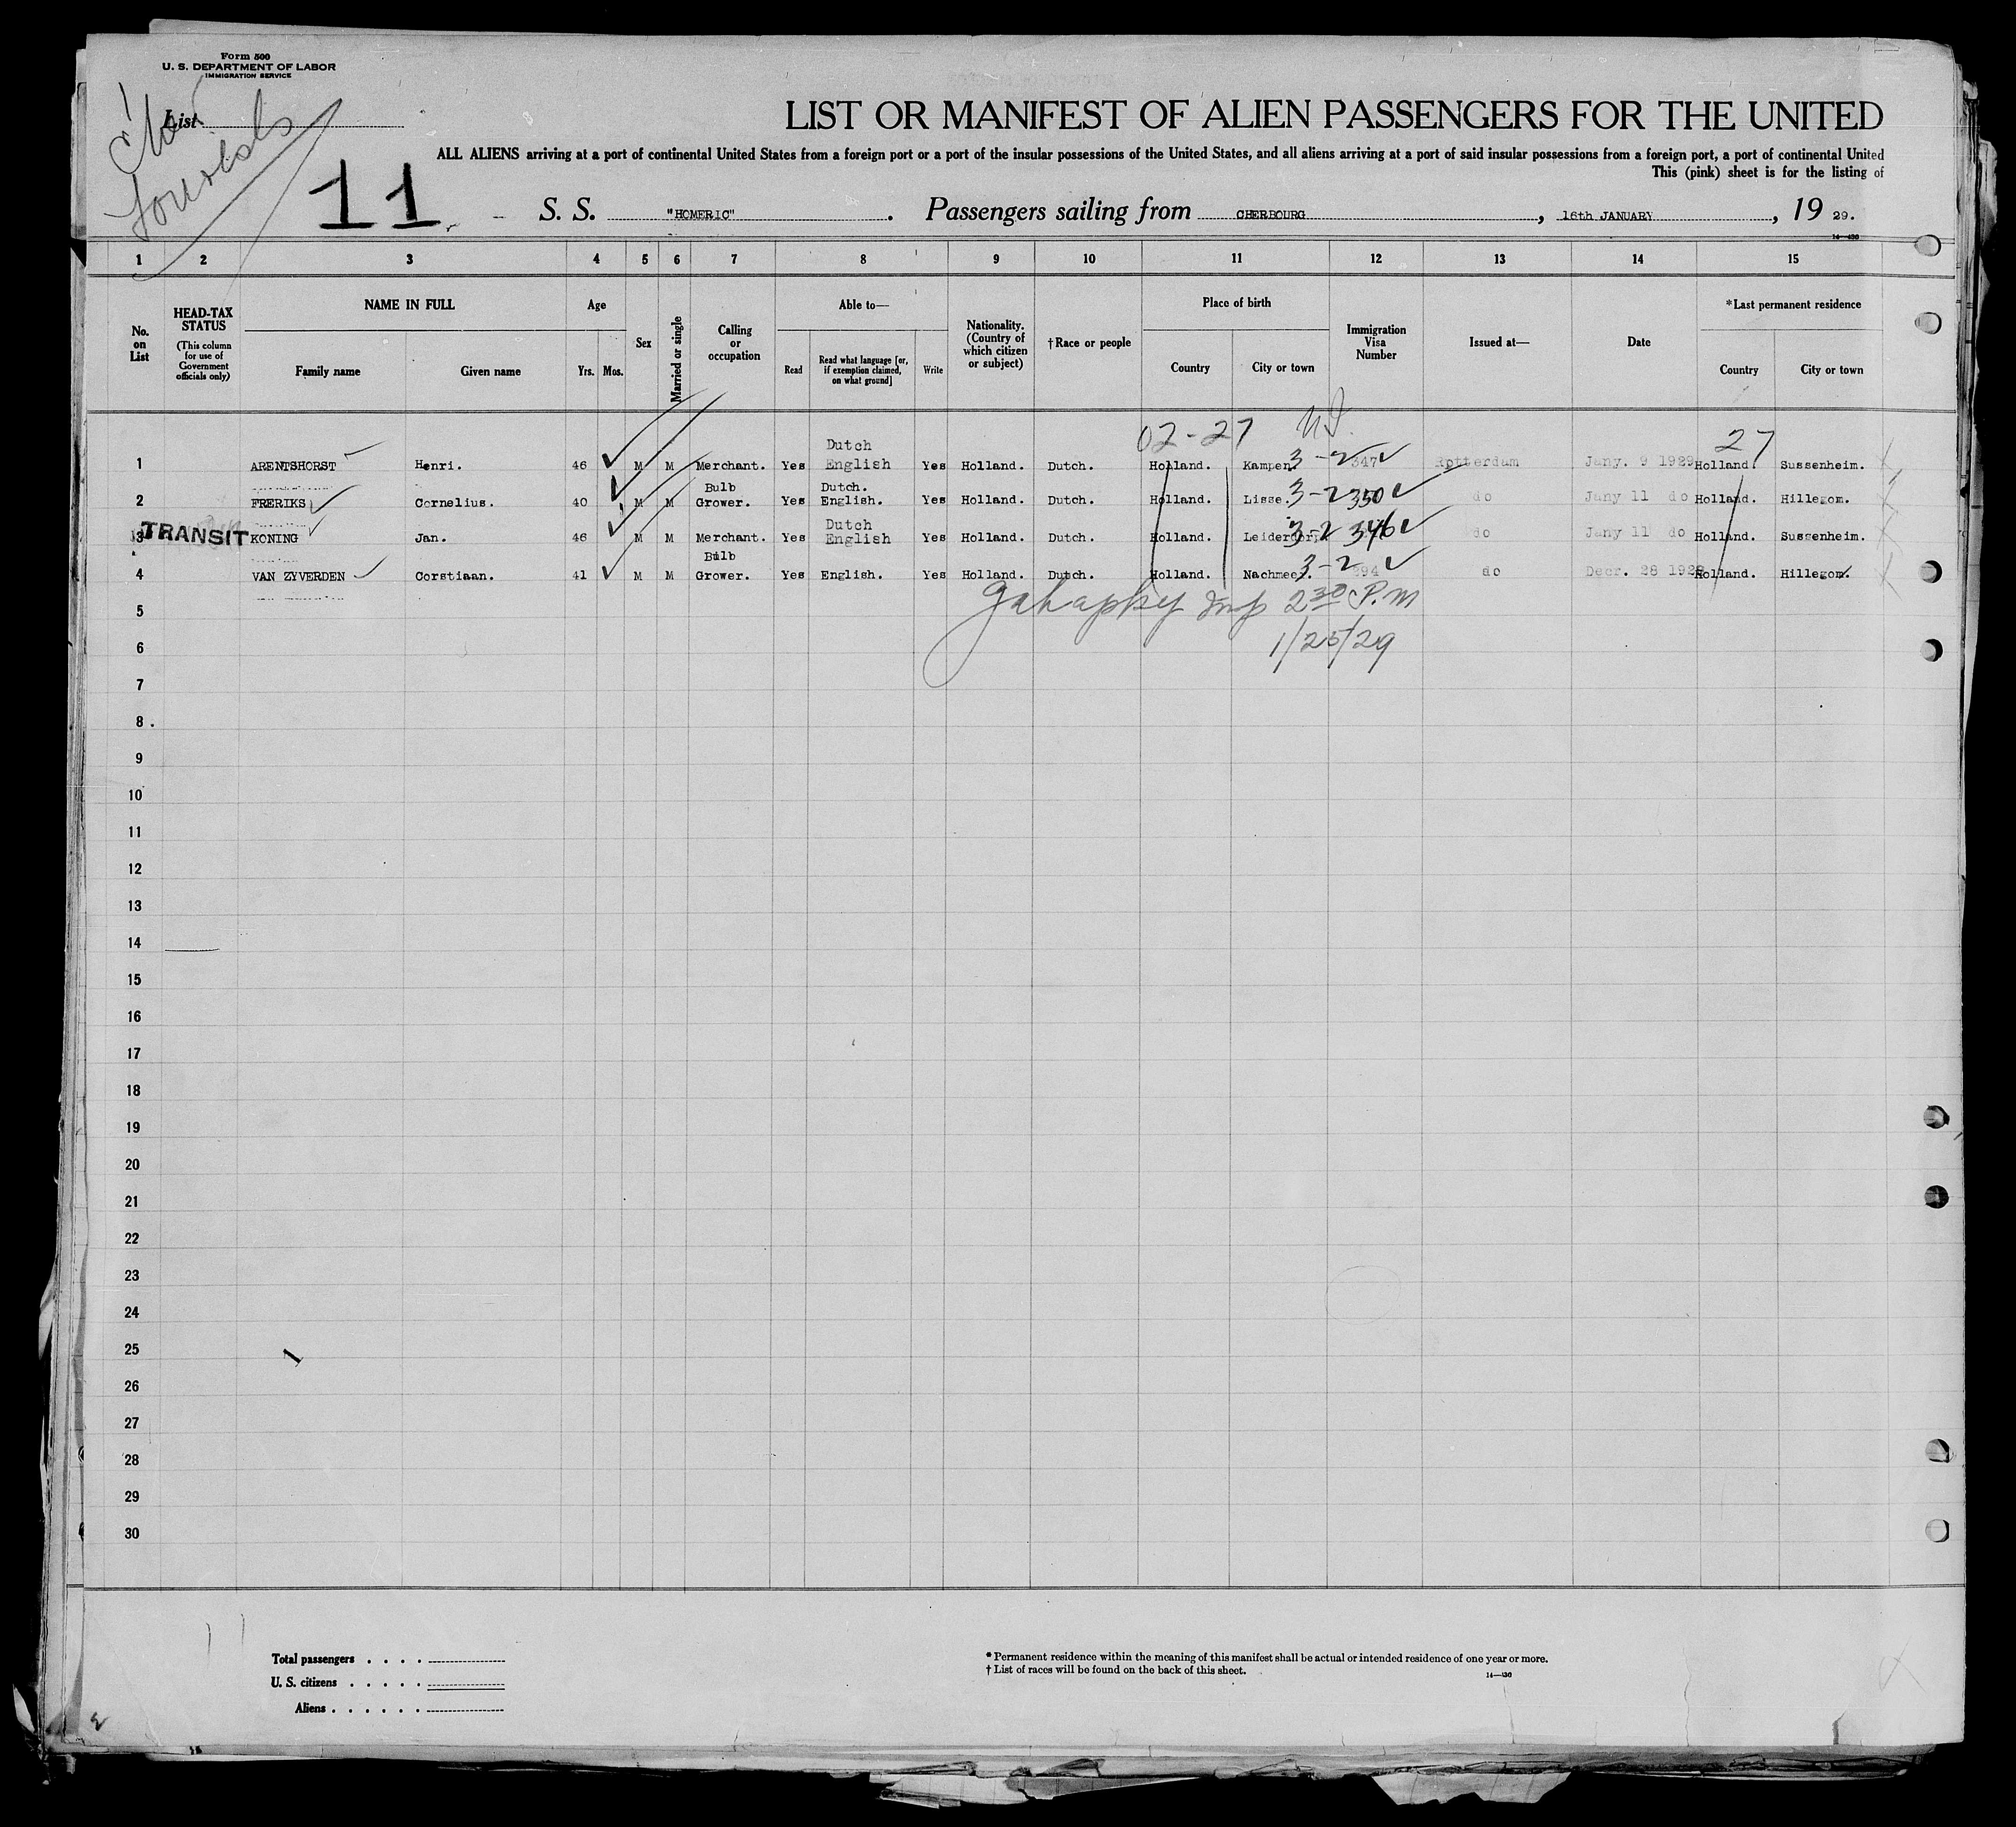 Form 500
U. S. DEPARTMENT OF LABOR
IMMIGRATION SERVICE
List
11
LIST OR MANIFEST OF ALIEN PASSENGERS FOR THE UNITED
ALL ALIENS arriving at a port of continental United States from a foreign port or a port of the insular possessions of the United States, and all aliens arriving at a port of said insular possessions from a foreign port, a port of continental United
This (pink) sheet is for the listing of
S. S. "HOMERIC". Passengers sailing from CHERBOURG, 16th JANUARY, 19 29.
14—430
1 2 3 4 5 6 7 8 9 10 11 12 13 14 15
No. on List
HEAD-TAX STATUS
(This column for use of Government officials only)
NAME IN FULL
Family name Given name
Age
Yrs. Mos.
Sex
Married or single
Calling or occupation
Able to—
Read
Read what language [or, if exemption claimed, on what ground]
Write
Nationality. (Country of which citizen or subject)
†Race or people
Place of birth
Country City or town
Immigration Visa Number
Issued at—
Date
*Last permanent residence
Country City or town
02-27 27
1 ARENTSHORST Henri. 46 M M Merchant. Yes Dutch English Yes Holland. Dutch. Holland. Kampen. 3-2 347 Rotterdam Jany. 9 1929 Holland. Sussenheim.
2 FRERIKS Cornelius. 40 M M Bulb Grower. Yes Dutch. English. Yes Holland. Dutch. Holland. Lisse. 3-2 350 do Jany 11 do Holland. Hillegom.
TRANSIT
3 KONING Jan. 46 M M Merchant. Yes Dutch English Yes Holland. Dutch. Holland. Leiderdorp. 3-2 346 do Jany 11 do Holland. Sussenheim.
4 VAN ZYVERDEN Corstiaan. 41 M M Bulb Grower. Yes English. Yes Holland. Dutch. Holland. 3-2 294 do Decr. 28 1928 Holland. Hillegom.
Insp 2 30 P.M
1/25/29
5
6
7
8
9
10
11
12
13
14
15
16
17
18
19
20
21
22
23
24
25
26
27
28
29
30
Total passengers
U. S. citizens
Aliens
* Permanent residence within the meaning of this manifest shall be actual or intended residence of one year or more.
† List of races will be found on the back of this sheet.
14—430